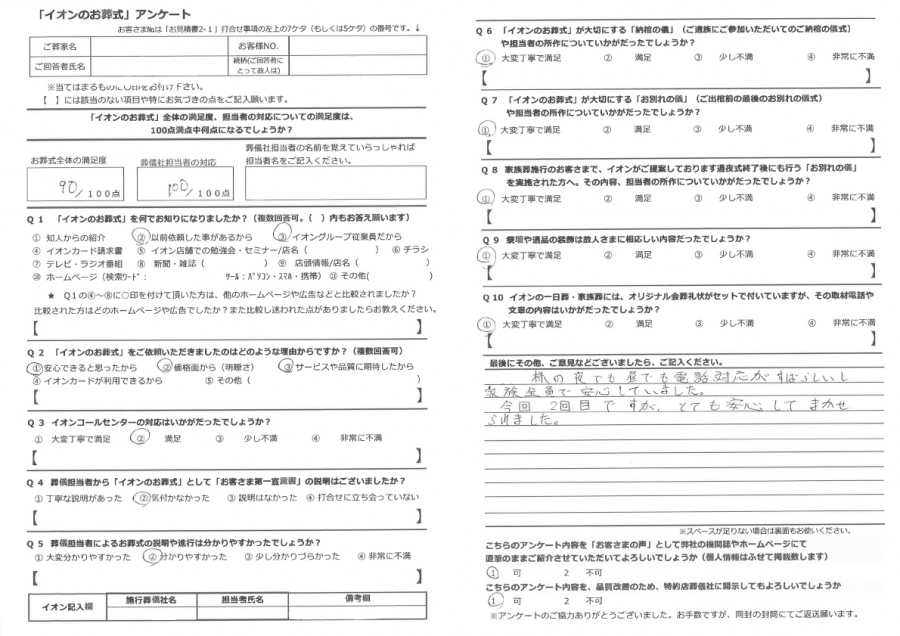 「イオンのお葬式」アンケート
お客さま№は「お見積書2-1」打合せ事項の左上の7ケタ(もしくは5ケタ)の番号です。↓
ご葬家名 お客様NO.
ご回答者氏名 続柄(ご回答者にとって故人は)
※当てはまるものに○印をお付け下さい。
【 】には該当のない項目や特にお気づきの点をご記入願います。
「イオンのお葬式」全体の満足度、担当者の対応についての満足度は、
100点満点中何点になるでしょうか?
葬儀社担当者の名前を覚えていらっしゃれば
お葬式全体の満足度 葬儀社担当者の対応 担当者名をご記入ください。
90/100点 100/100点
Q1 「イオンのお葬式」を何でお知りになりましたか?(複数回答可。( )内もお答え願います)
① 知人からの紹介 ② 以前依頼した事があるから ③ イオングループ従業員だから
④ イオンカード請求書 ⑤ イオン店舗での勉強会・セミナー/店名( ) ⑥ チラシ
⑦ テレビ・ラジオ番組 ⑧ 新聞・雑誌( ) ⑨ 店頭情報/店名( )
⑩ ホームページ(検索ワード: ツール:パソコン・スマホ・携帯) ⑪ その他( )
★ Q1の④~⑧に○印を付けて頂いた方は、他のホームページや広告などと比較されましたか?
比較された方はどのホームページや広告でしたか?また比較し迷われた点がありましたらお教えください。
【 】
Q2 「イオンのお葬式」をご依頼いただきましたのはどのような理由からですか?(複数回答可)
① 安心できると思ったから ② 価格面から(明瞭さ) ③ サービスや品質に期待したから
④ イオンカードが利用できるから ⑤ その他( )
【 】
Q3 イオンコールセンターの対応はいかがだったでしょうか?
① 大変丁寧で満足 ② 満足 ③ 少し不満 ④ 非常に不満
【 】
Q4 葬儀担当者から「イオンのお葬式」として「お客さま第一宣言書」の説明はございましたか?
① 丁寧な説明があった ② 気付かなかった ③ 説明はなかった ④ 打合せに立ち会っていない
【 】
Q5 葬儀担当者によるお葬式の説明や進行は分かりやすかったでしょうか?
① 大変分かりやすかった ② 分かりやすかった ③ 少し分かりづらかった ④ 非常に不満
【 】
イオン記入欄 施行葬儀社名 担当者氏名 備考欄
Q6 「イオンのお葬式」が大切にする「納棺の儀」(ご遺族にご参加いただいてのご納棺の儀式)
や担当者の所作についていかがだったでしょうか?
① 大変丁寧で満足 ② 満足 ③ 少し不満 ④ 非常に不満
【 】
Q7 「イオンのお葬式」が大切にする「お別れの儀」(ご出棺前の最後のお別れの儀式)
や担当者の所作についていかがだったでしょうか?
① 大変丁寧で満足 ② 満足 ③ 少し不満 ④ 非常に不満
【 】
Q8 家族葬施行のお客さまで、イオンがご提案しております通夜式終了後にも行う「お別れの儀」
を実施された方へ。その内容、担当者の所作についていかがだったでしょうか?
① 大変丁寧で満足 ② 満足 ③ 少し不満 ④ 非常に不満
【 】
Q9 祭壇や遺品の装飾は故人さまに相応しい内容だったでしょうか?
① 大変丁寧で満足 ② 満足 ③ 少し不満 ④ 非常に不満
【 】
Q10 イオンの一日葬・家族葬には、オリジナル会葬礼状がセットで付いていますが、その取材電話や
文章の内容はいかがだったでしょうか?
① 大変丁寧で満足 ② 満足 ③ 少し不満 ④ 非常に不満
【 】
最後にその他、ご意見などございましたら、ご記入ください。
様の夜でも昼でも電話対応がすばらしいし
家族全員で安心していました。
今回2回目ですが、とても安心してまかせ
られました。
※スペースが足りない場合は裏面もお使いください。
こちらのアンケート内容を「お客さまの声」として弊社の機関誌やホームページにて
直筆のままご紹介させていただいてよろしいでしょうか(個人情報はふせて掲載致します)
1 可 2 不可
こちらのアンケート内容を、品質改善のため、特約店葬儀社に開示してもよろしいでしょうか
1 可 2 不可
※アンケートのご協力ありがとうございました。お手数ですが、同封の封筒にてご返送願います。